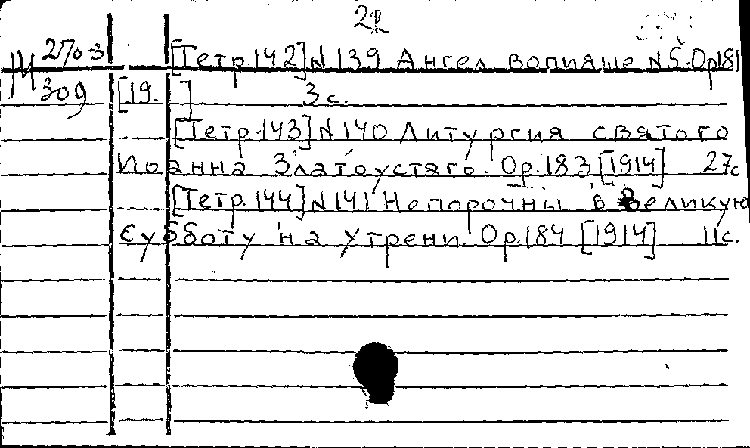 22
М 270-3 [Тетр.142] N 139 Ангел вопияше N5. Ор.181
309 [19. ] 3 с.
[Тетр.143] N 140 Литургия святого
Иоанна Златоустаго. Ор.183 [1914] 27с
[Тетр.144] N 141 Непорочны в великую
субботу на утрени. Ор.184 [1914] 11с.